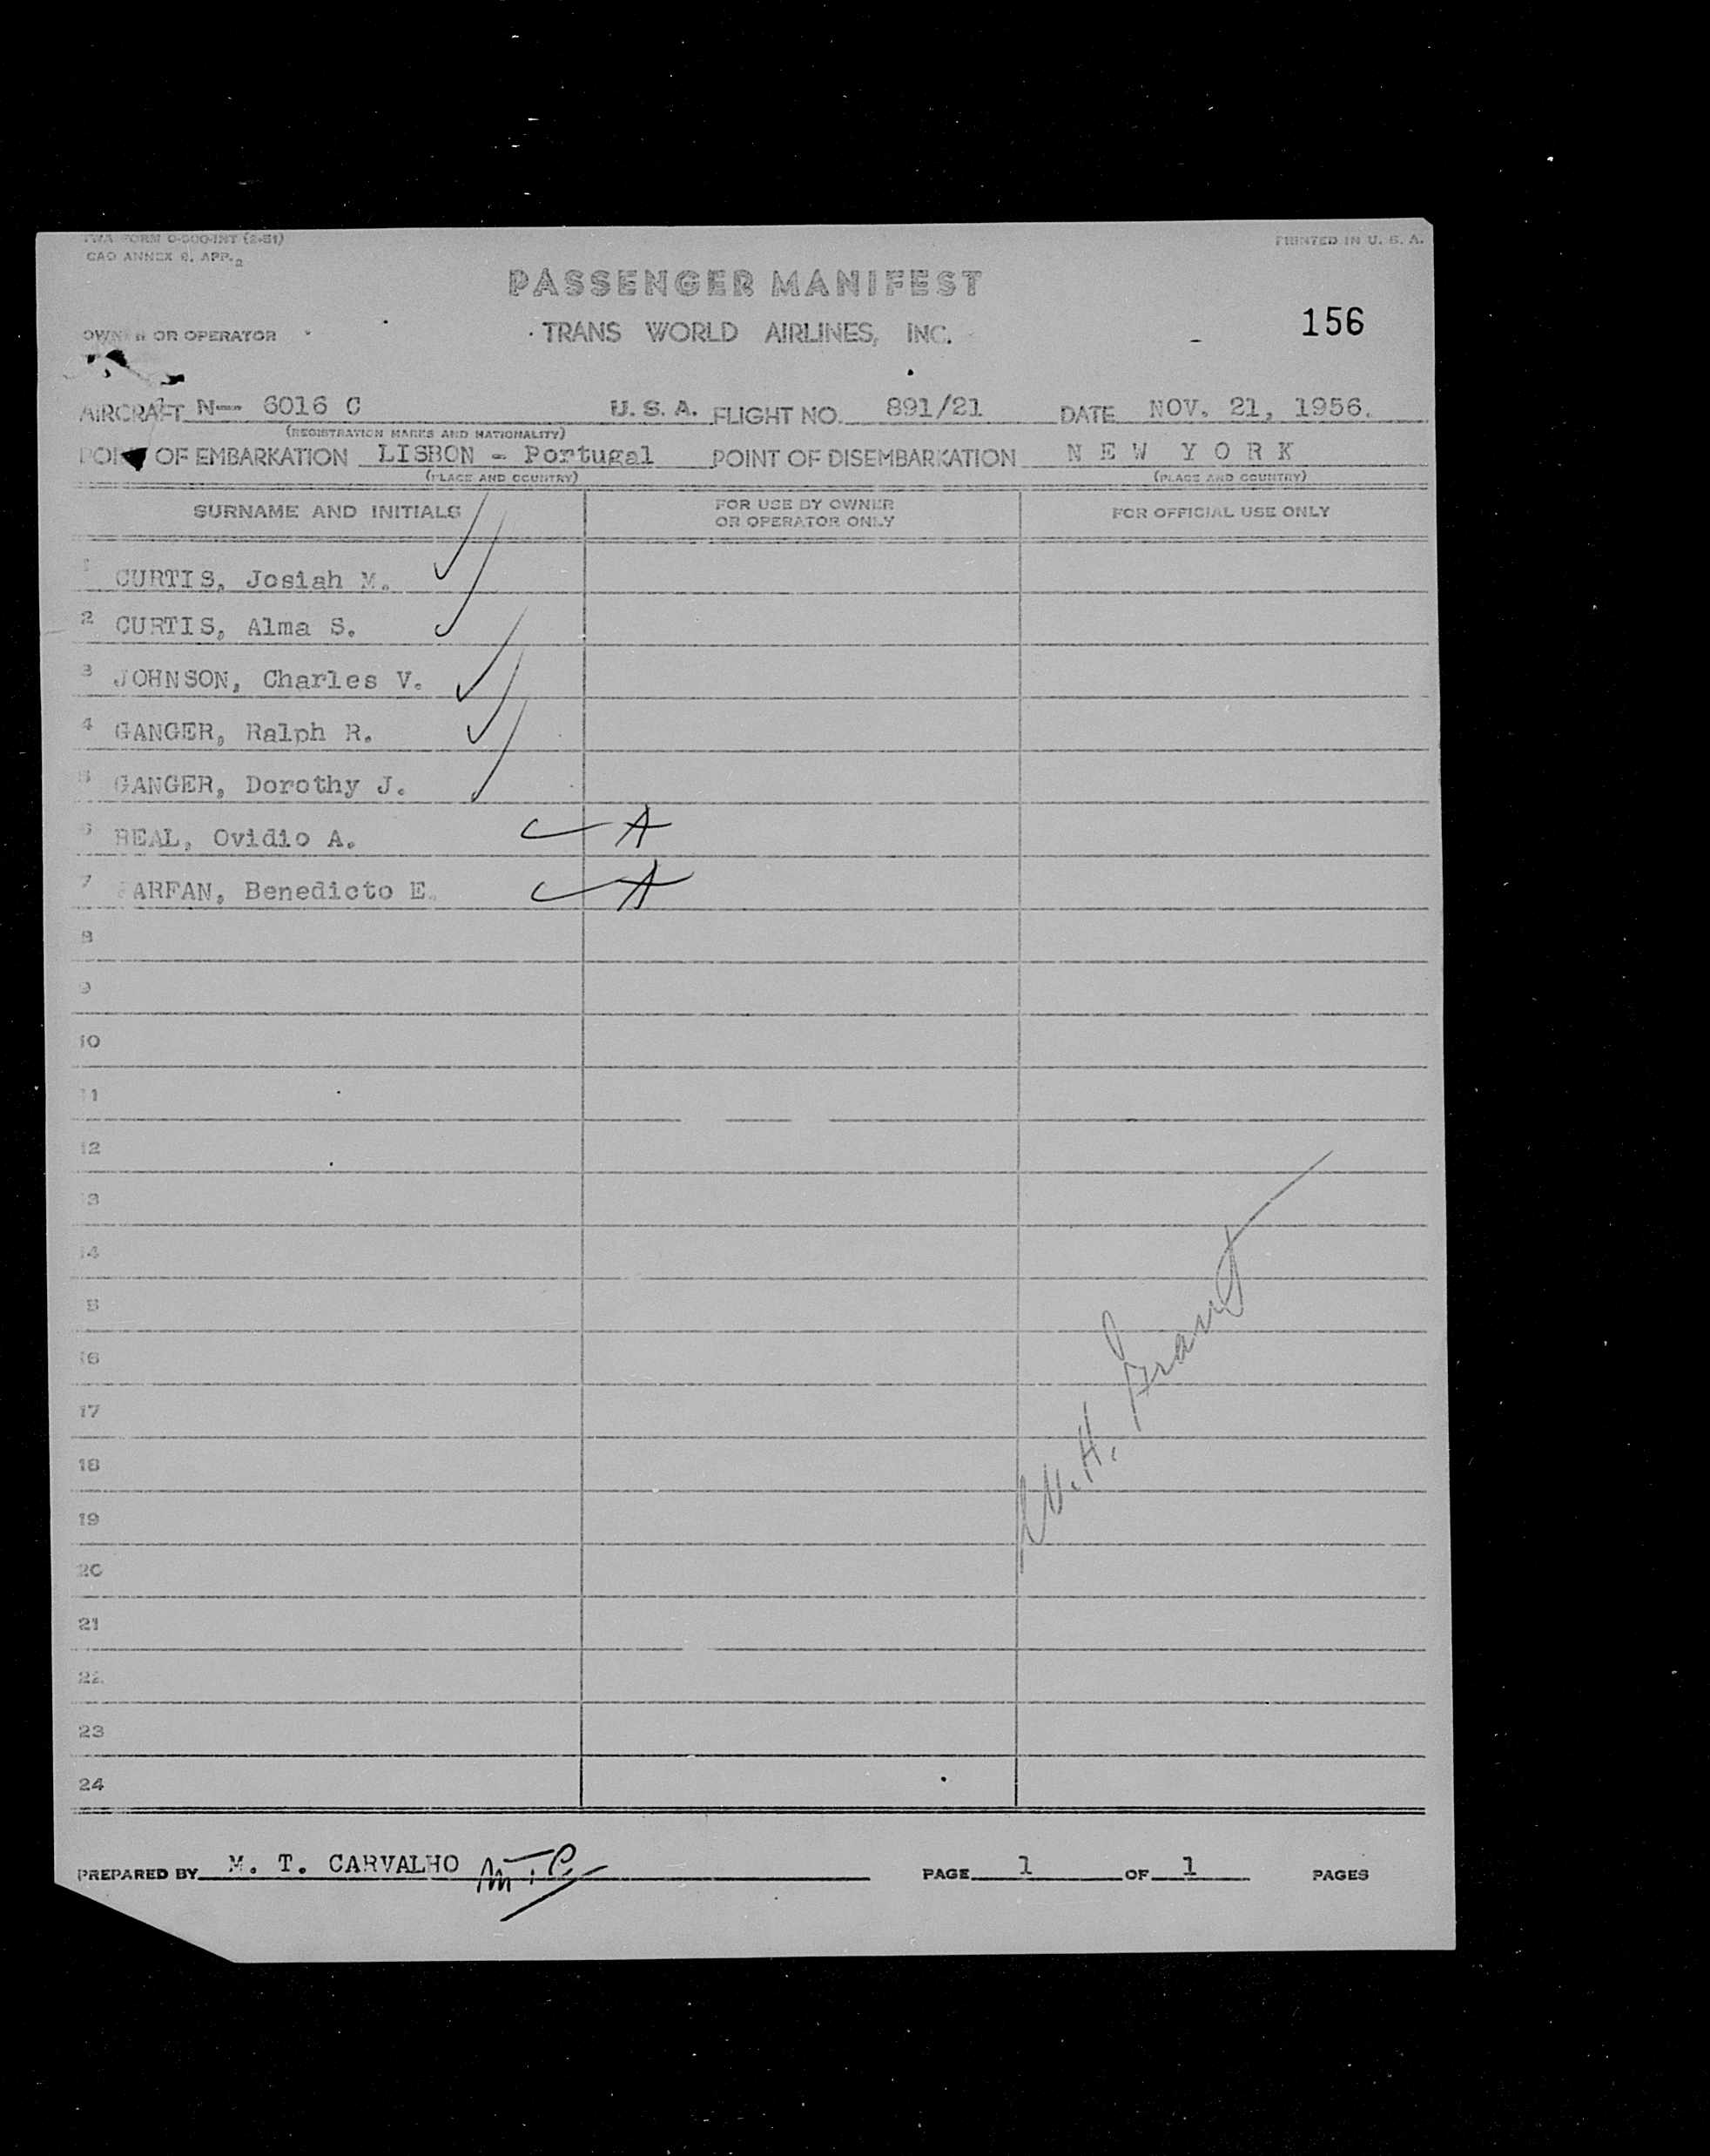 TWA FORM 0-500-INT (2-51)
PRINTED IN U. S. A.
CAO ANNEX 9, APP. 2
PASSENGER MANIFEST
156
OWNER OR OPERATOR
TRANS WORLD AIRLINES, INC.
AIRCRAFT N-- 6016 C U. S. A. FLIGHT NO. 891/21 DATE NOV. 21, 1956.
(REGISTRATION MARKS AND NATIONALITY)
POINT OF EMBARKATION LISBON - Portugal POINT OF DISEMBARKATION N E W Y O R K
(PLACE AND COUNTRY) (PLACE AND COUNTRY)
SURNAME AND INITIALS
FOR USE BY OWNER
OR OPERATOR ONLY
FOR OFFICIAL USE ONLY
1 CURTIS, Josiah M.
2 CURTIS, Alma S.
3 JOHNSON, Charles V.
4 GANGER, Ralph R.
5 GANGER, Dorothy J.
6 REAL, Ovidio A. A
7 FARFAN, Benedicto E. A
8
9
10
11
12
13
14
15
16
17
18
19
20
21
22
23
24
W. H. Grant
PREPARED BY M. T. CARVALHO MTC
PAGE 1 OF 1 PAGES